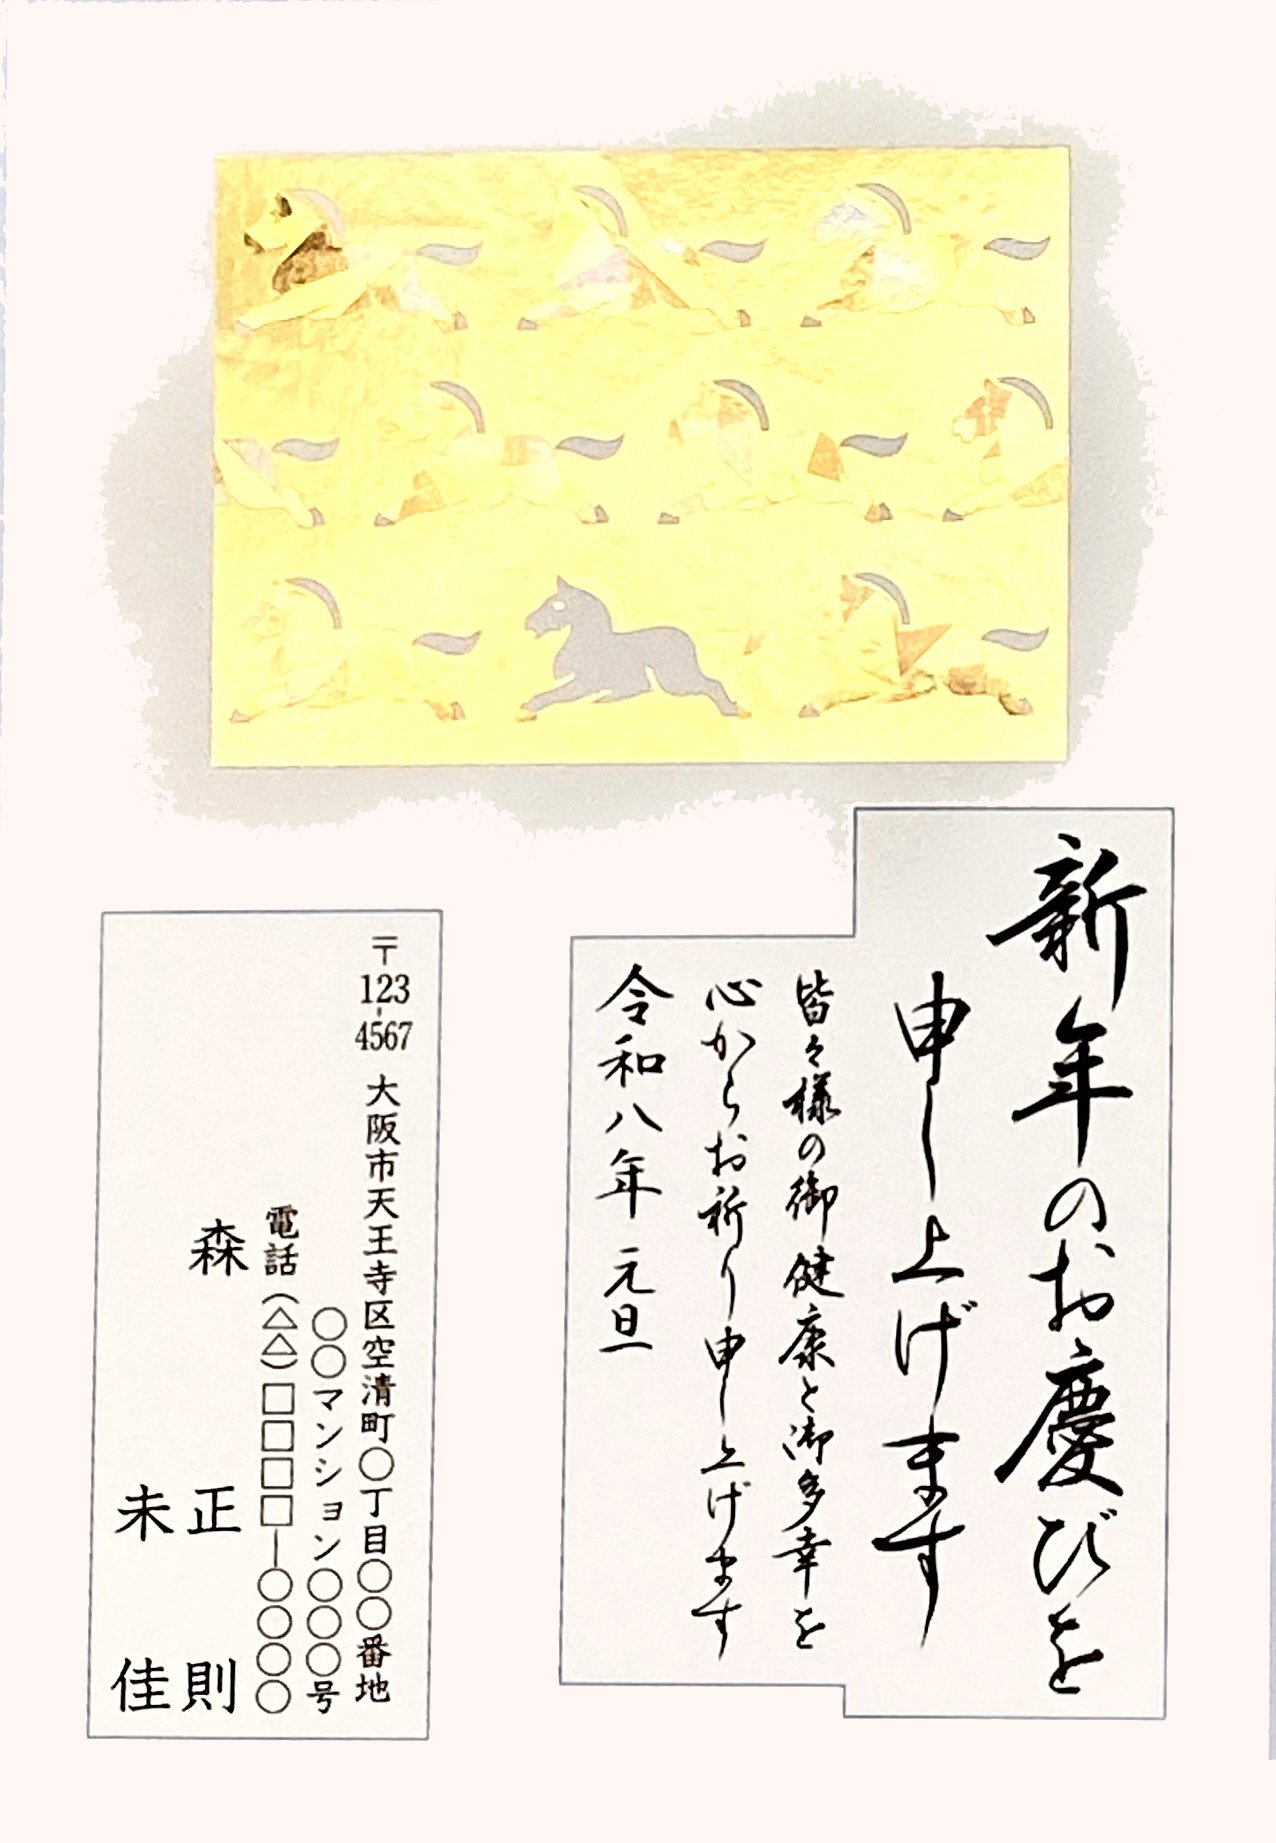 新年のお慶びを
申し上げます
皆々様の御健康と御多幸を
心からお祈り申し上げます
令和八年 元旦
〒123-4567 大阪市天王寺区空清町○丁目○○番地
○○マンション○○○号
電話(△△)□□□□―○○○○
森 正則
未佳